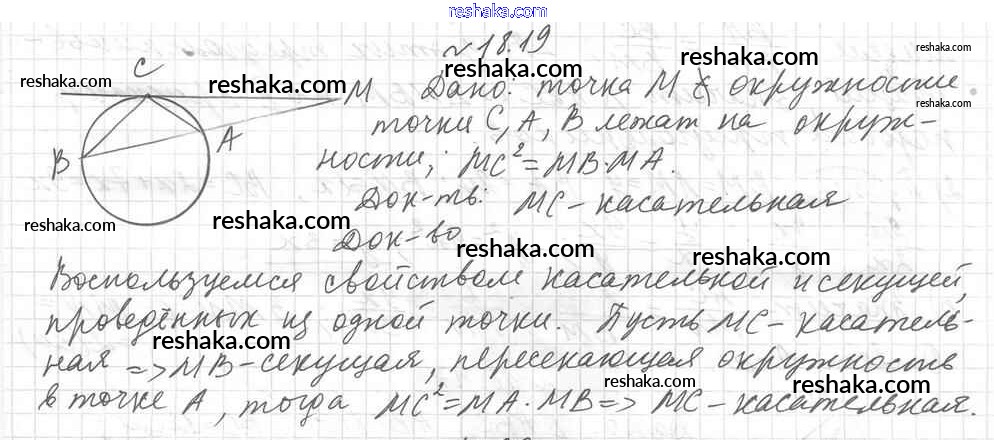 reshaka.com
№18.19
reshaka.com
reshaka.com
reshaka.com
reshaka.com
C
M
A
B
Дано: точка M ∉ окружности.
точки C, A, B лежат на окруж-
ности; MC²=MB·MA.
reshaka.com
Док-ть: MC-касательная
reshaka.com
reshaka.com
reshaka.com
Док-во
reshaka.com
reshaka.com
Воспользуемся свойством касательной и секущей,
проведённых из одной точки. Пусть MC-касатель-
reshaka.com
reshaka.com
ная => MB-секущая, пересекающая окружность
reshaka.com
reshaka.com
в точке A, тогда MC²=MA·MB=> MC-касательная.